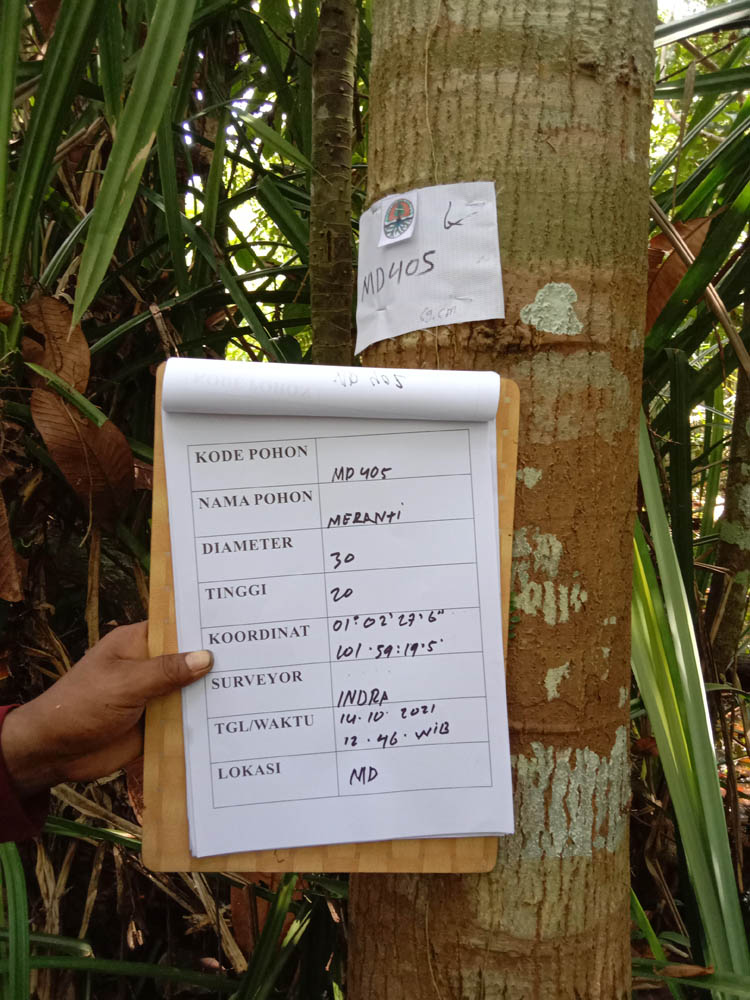 MD405
KODE POHON MD405
NAMA POHON MERANTI
DIAMETER 30
TINGGI 20
KOORDINAT 01° 02' 27.6"
101.59:19.5'
SURVEYOR INDRA
TGL/WAKTU 14.10.2021
12.46.WIB
LOKASI MD